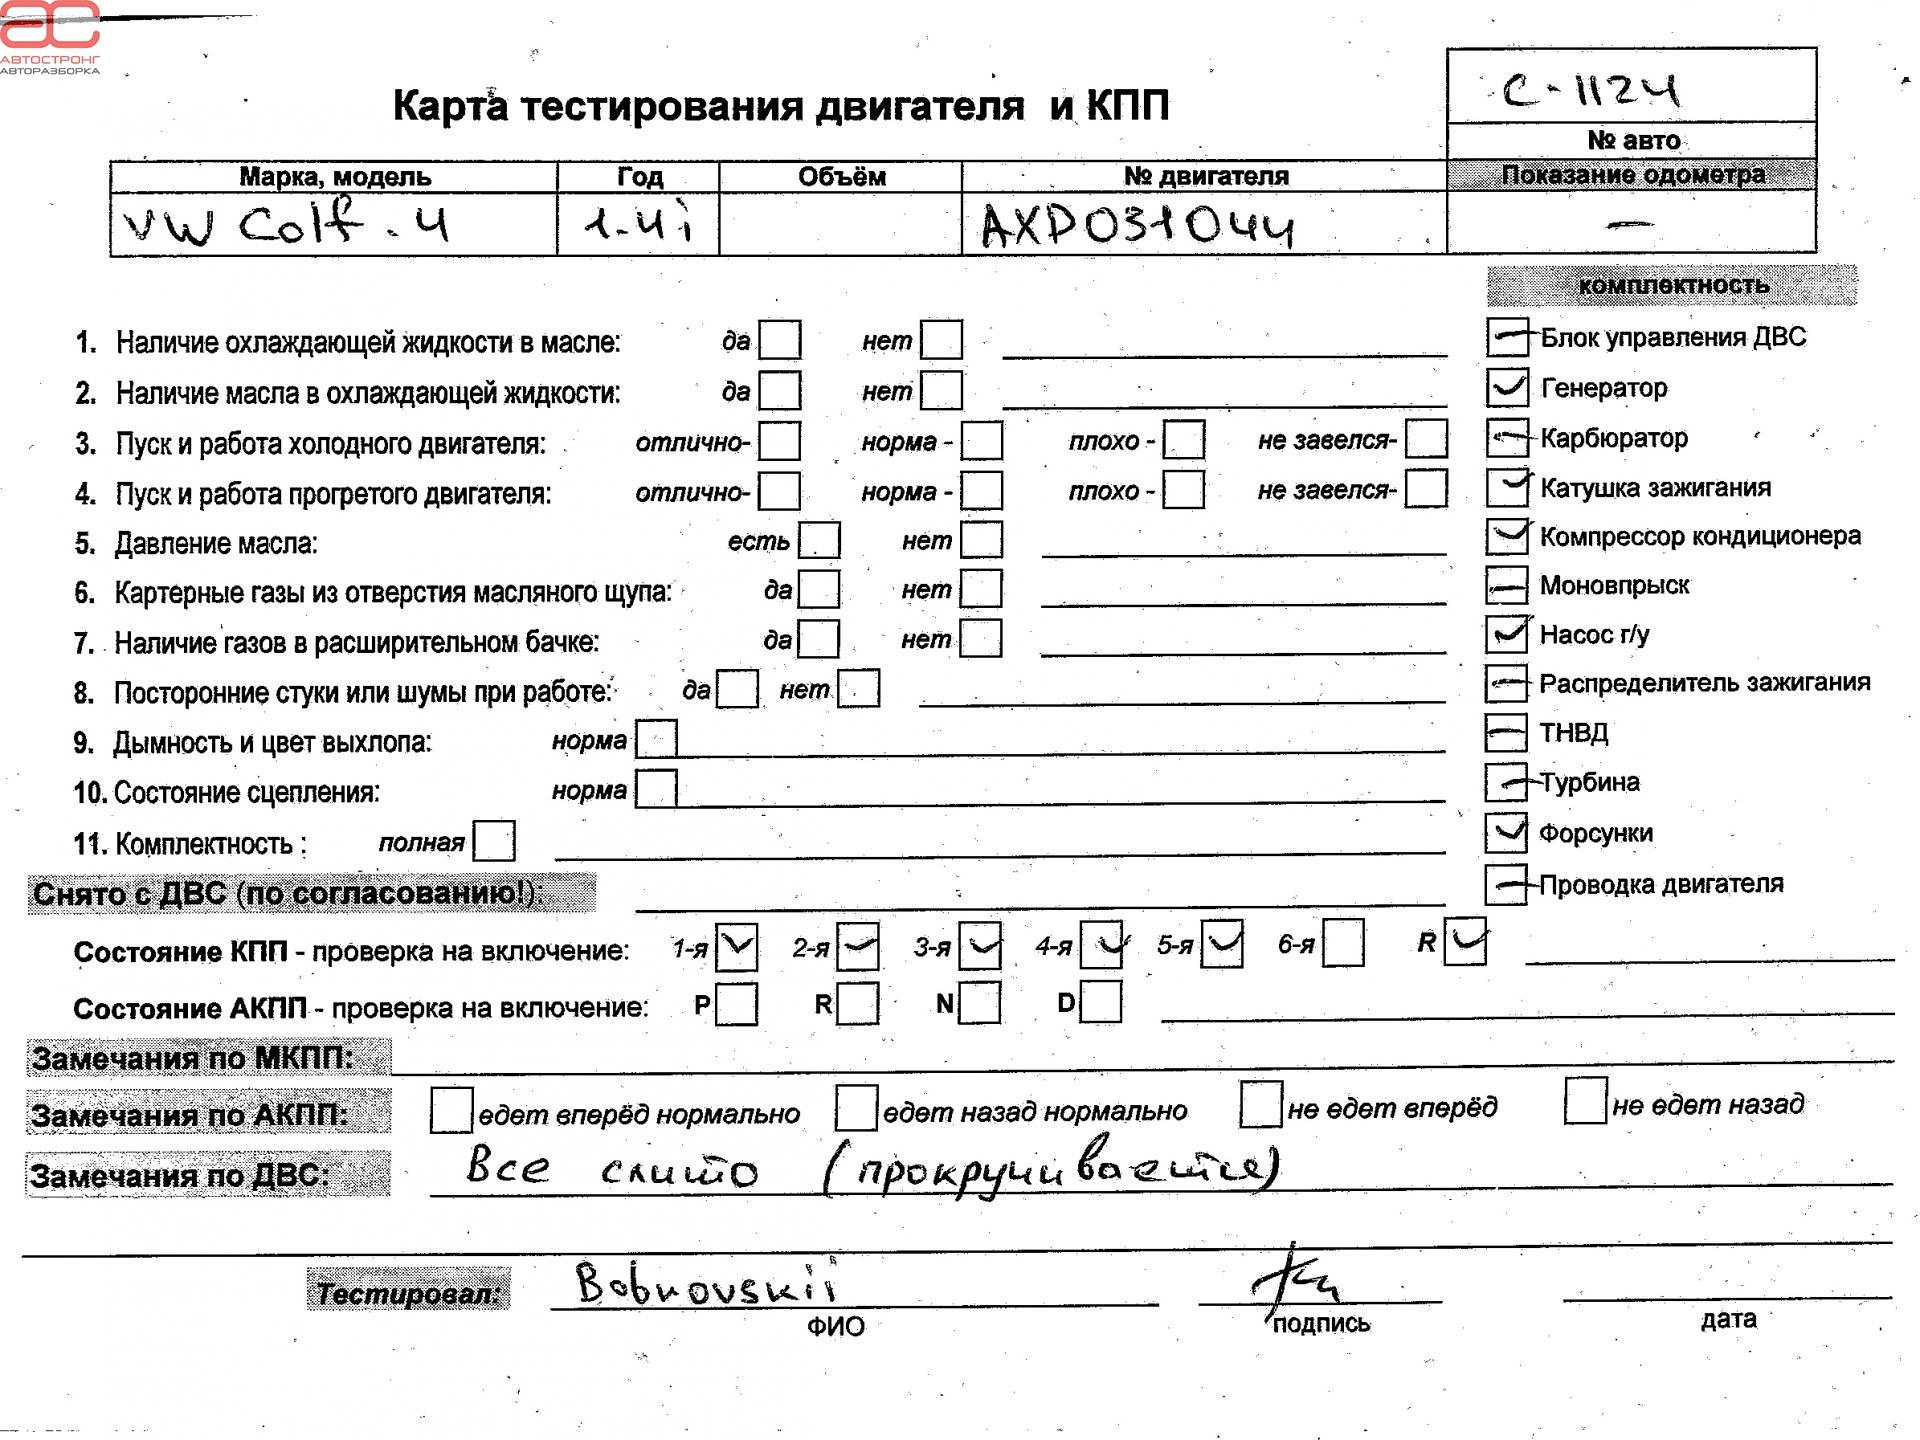 АВТОСТРОНГ
АВТОРАЗБОРКА
С-1124
Карта тестирования двигателя и КПП
№ авто
Марка, модель Год Объём № двигателя Показание одометра
VW Golf . 4 1.4i AXP031044 —
комплектность
1. Наличие охлаждающей жидкости в масле: да нет
Блок управления ДВС
2. Наличие масла в охлаждающей жидкости: да нет
Генератор
3. Пуск и работа холодного двигателя: отлично- норма - плохо - не завелся-
Карбюратор
4. Пуск и работа прогретого двигателя: отлично- норма - плохо - не завелся-
Катушка зажигания
5. Давление масла: есть нет
Компрессор кондиционера
6. Картерные газы из отверстия масляного щупа: да нет
Моновпрыск
7. Наличие газов в расширительном бачке: да нет
Насос г/у
8. Посторонние стуки или шумы при работе: да нет
Распределитель зажигания
9. Дымность и цвет выхлопа: норма
ТНВД
10. Состояние сцепления: норма
Турбина
11. Комплектность : полная
Форсунки
Снято с ДВС (по согласованию!):
Проводка двигателя
Состояние КПП - проверка на включение: 1-я 2-я 3-я 4-я 5-я 6-я R
Состояние АКПП - проверка на включение: P R N D
Замечания по МКПП:
Замечания по АКПП: едет вперёд нормально едет назад нормально не едет вперёд не едет назад
Замечания по ДВС: Все слито (прокручивается)
Тестировал: Bobnovskii
ФИО подпись дата